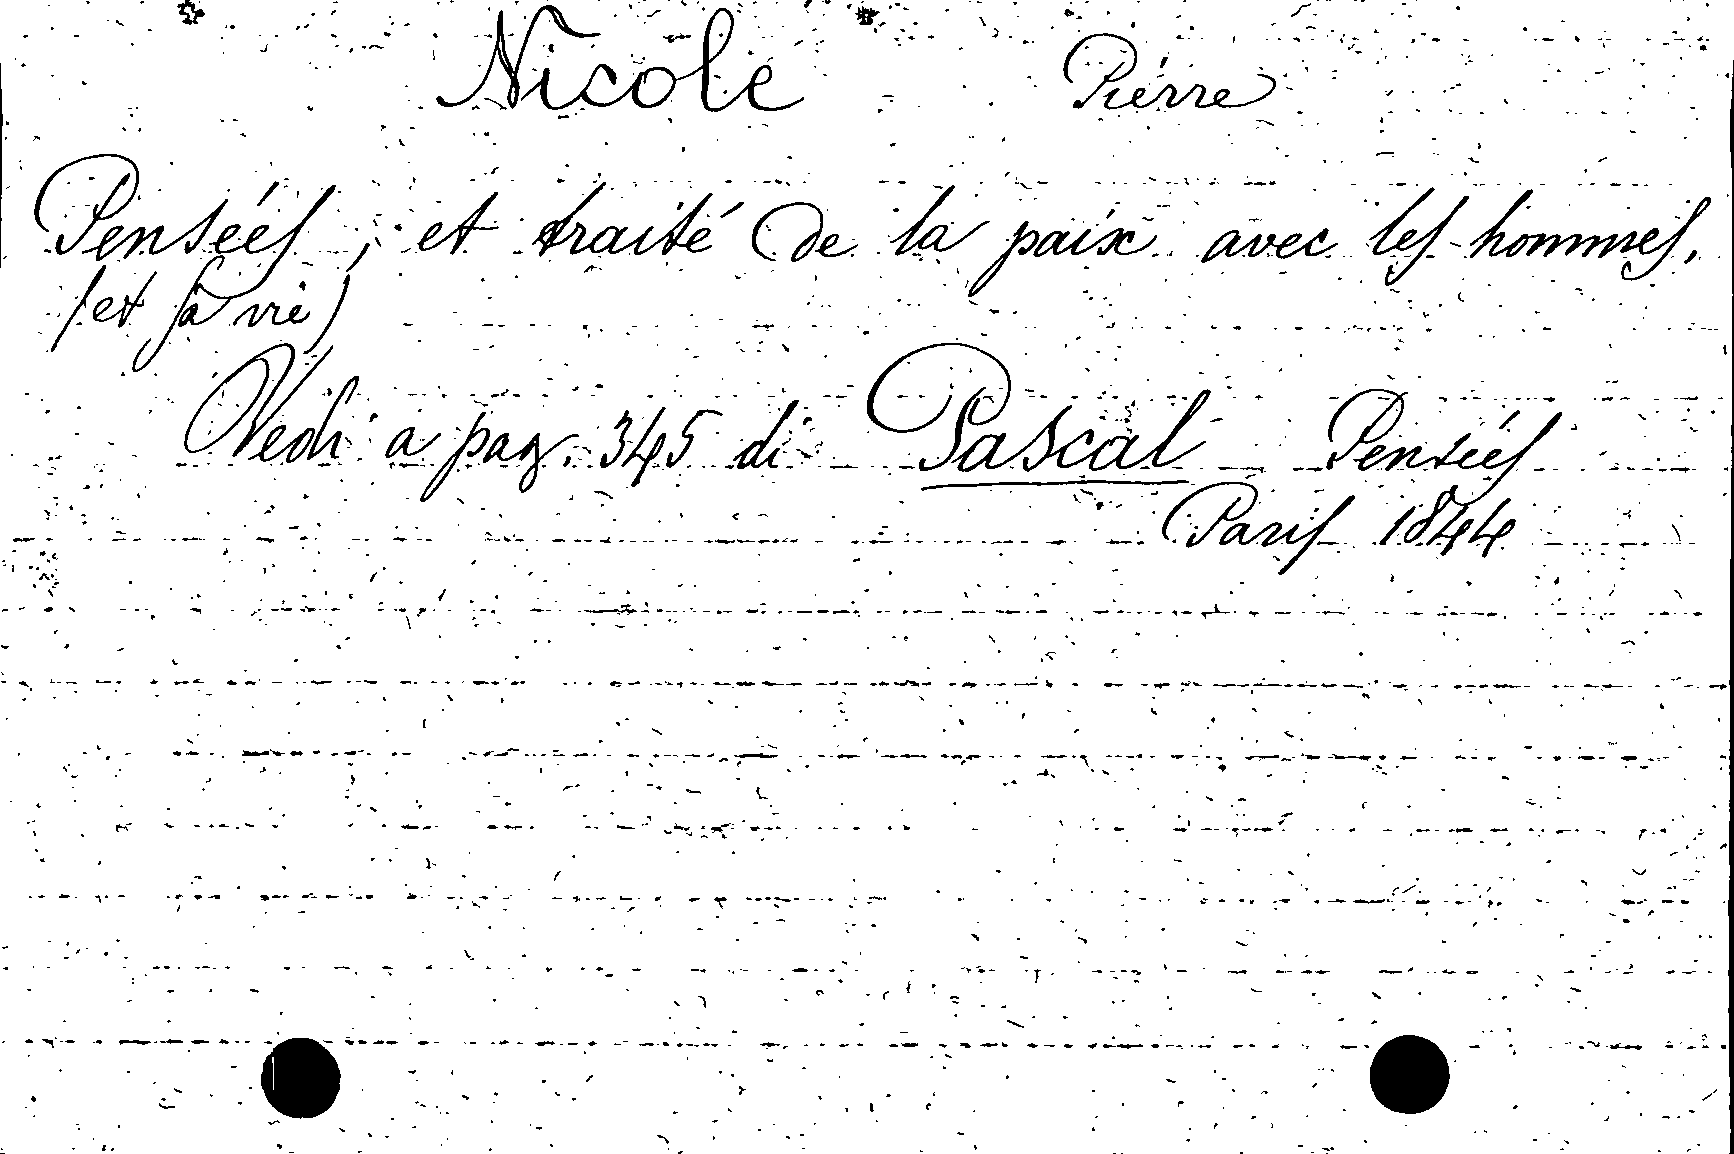 Nicole Pierre
Pensées, et traité de la paix avec les hommes,
(et sa vie)
Vedi a pag. 345 di Pascal Pensées
Paris 1844